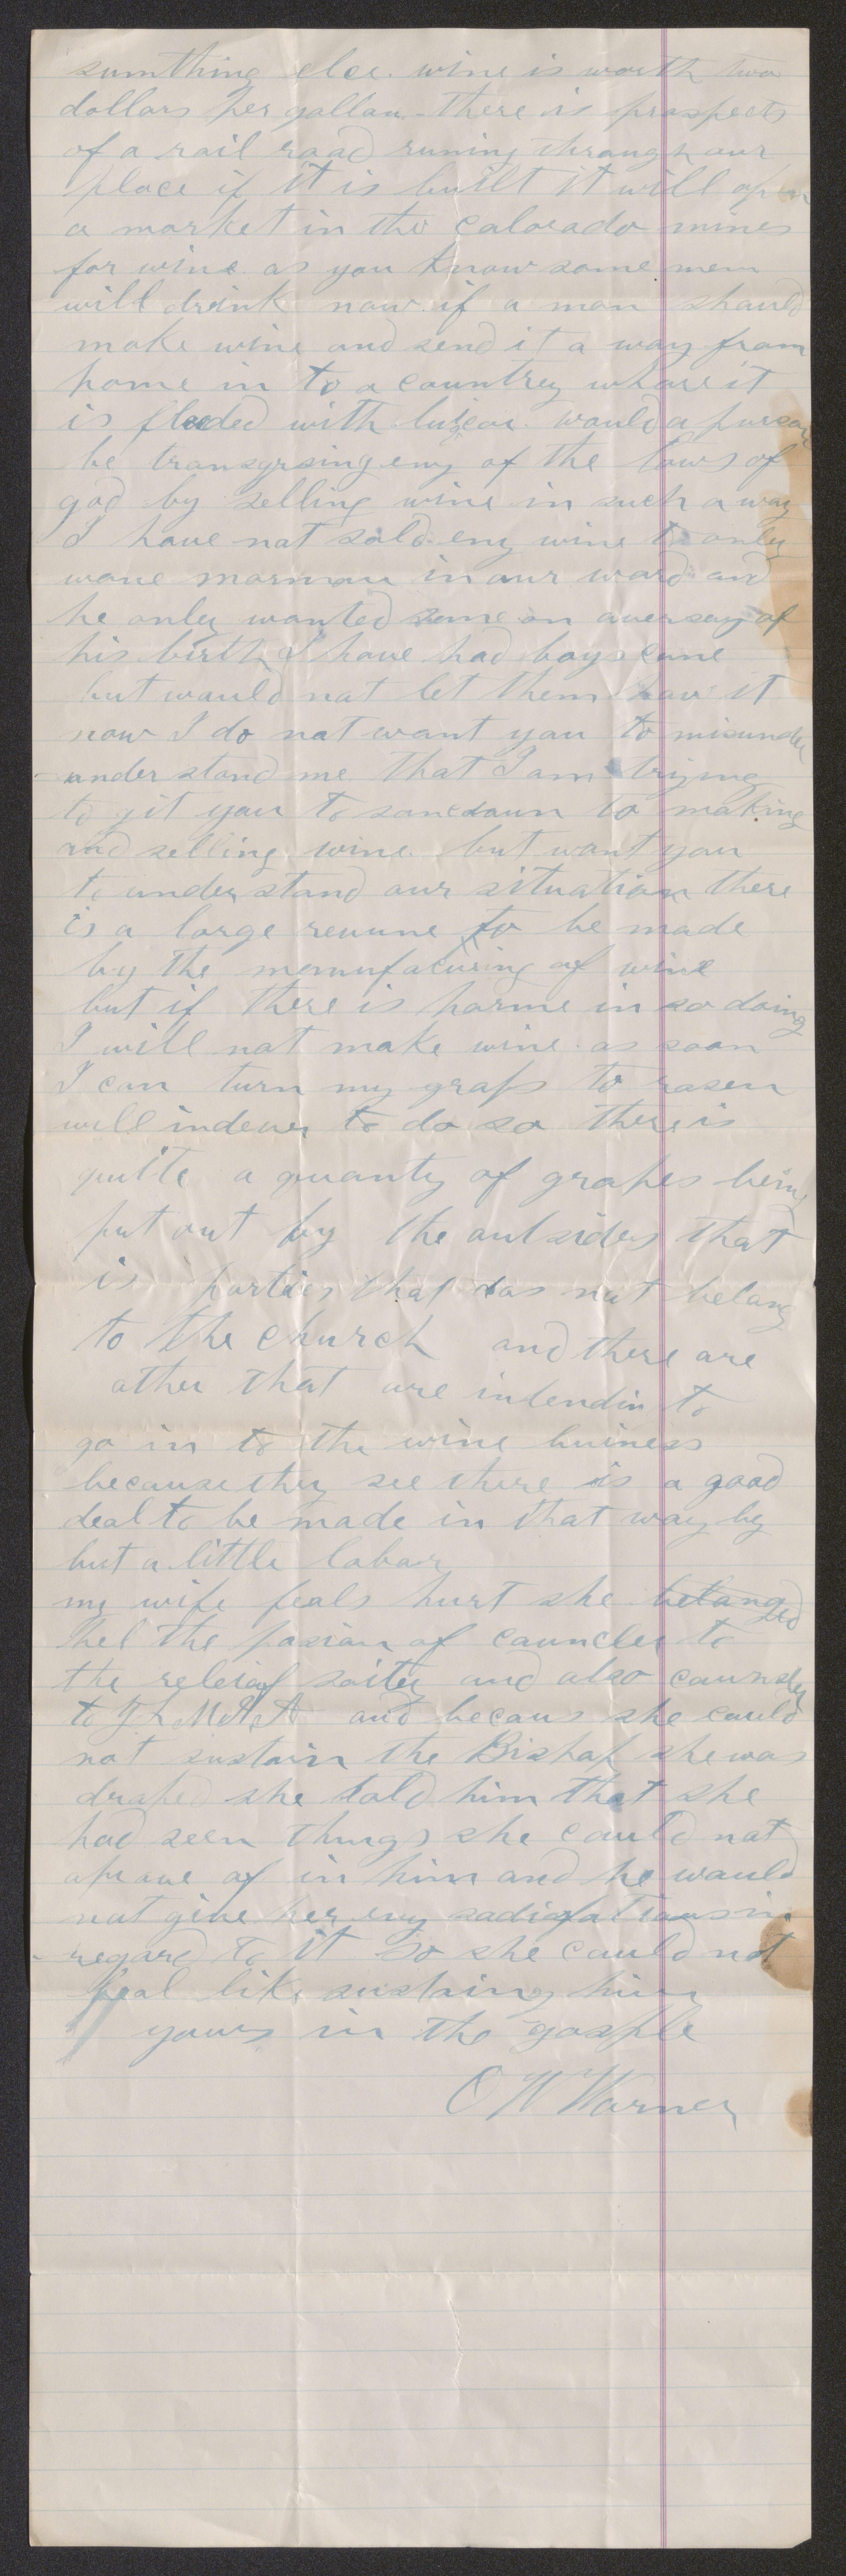 sumthing else. wine is worth two
dollars per gallon. there is prospects
of a rail road runing through our
place if it is built it will open
a market in the Colorado mines
for wine. as you know some men
will drink now. if a man should
make wine and send it a way from
home in to a country whare it
is flooded with would a purson
be transgrsing eny of the laws of
god by selling wine in such a way
I have not sold eny wine to only
wone mormon in our ward and
he only wanted some on aversary of
his birth I have had boys come
but would not let them have it
now I do not want you to misunder
under stand me that I am trying
to git you to to making
and selling wine. but want you
to under stand our situation there
is a large revune to be made
by the of wine
but if there is harme in so doing
I will not make wine. as soon
I can turn my graps to rasen
will indever to do so there is
quite a quanty of grapes being
put out by the outsiders that
is parties that das not belong
to the church and there are
other that are intendin to
go in to the wine buiness
because they see there is a good
deal to be made in that way by
but a little labor
my wife feals hurt she belonged
hel the posian of councler to
the releiaf soity and also counsler
to and becaus she could
not sustain the Bishop she was
droped she told him that she
had seen things she could not
aprove of in him and he would
not give her eny in
regard to it so she could not
feal like sustaing him
yours in the gosple
C W Warner